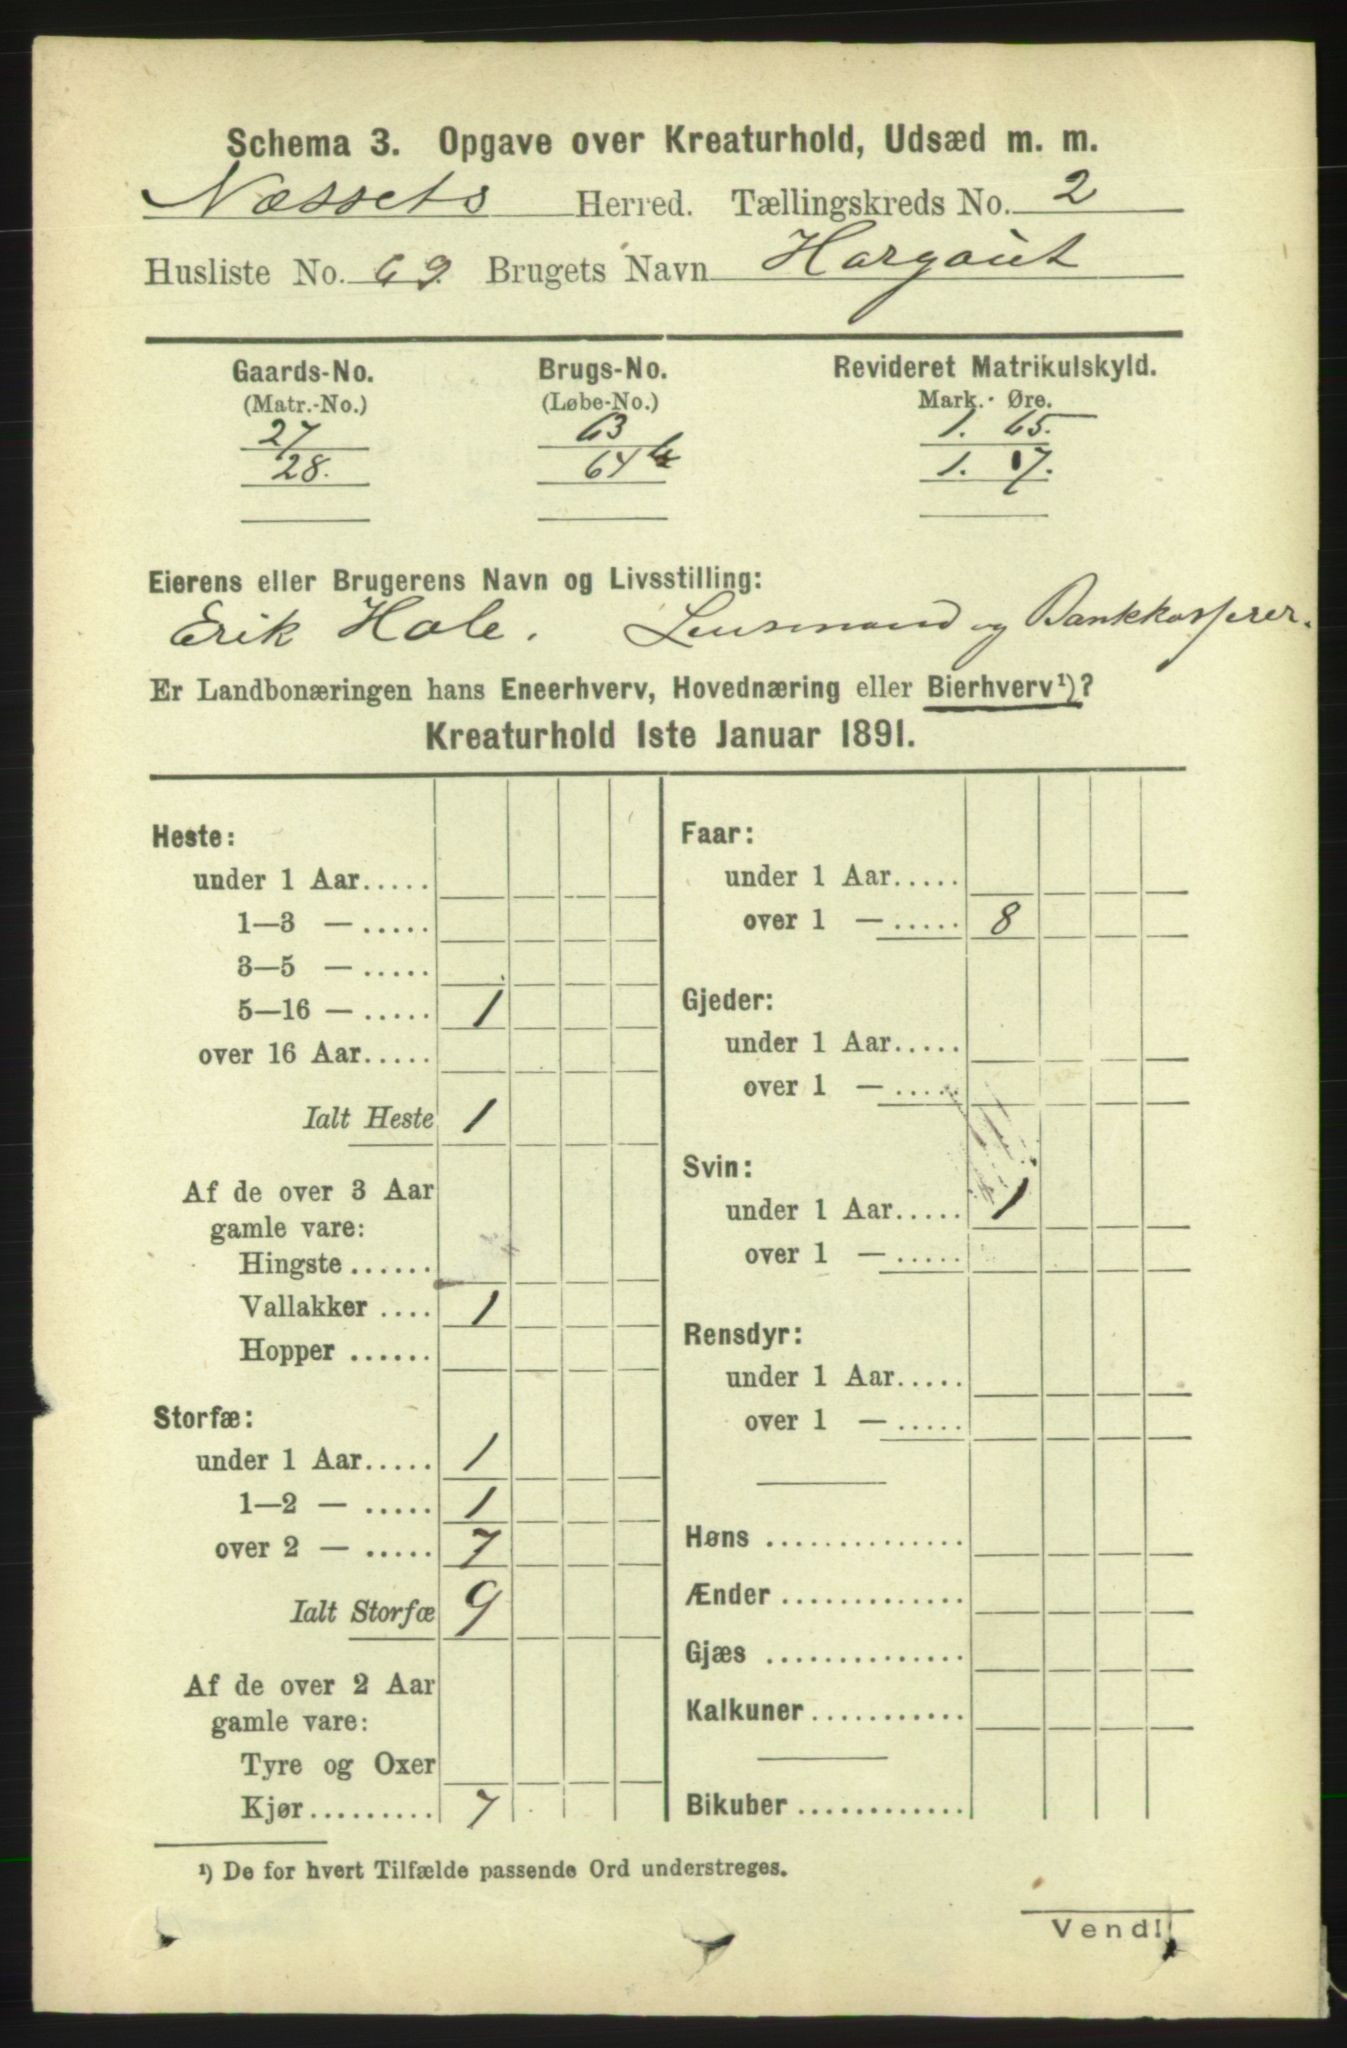 Schema 3. Opgave over Kreaturhold, Udsæd m. m.
Næssets Herred. Tællingskreds No. 2
Husliste No. 69. Brugets Navn Hargaut
Gaards-No. Brugs-No. Revideret Matrikulskyld.
(Matr.-No.) (Løbe-No.) Mark. Øre.
27 63 1. 65.
28. 64 1. 17.
Eierens eller Brugerens Navn og Livsstilling:
Erik Hole. Lensmand og Bankkasserer.
Er Landbonæringen hans Eneerhverv, Hovednæring eller Bierhverv¹)?
Kreaturhold 1ste Januar 1891.
Heste:
under 1 Aar.....
1—3 — .....
3—5 — .....
5—16 — ..... 1
over 16 Aar.....
Ialt Heste 1
Af de over 3 Aar
gamle vare:
Hingste ......
Vallakker .... 1
Hopper ......
Storfæ:
under 1 Aar..... 1
1—2 — ..... 1
over 2 — ..... 7
Ialt Storfæ 9
Af de over 2 Aar
gamle vare:
Tyre og Oxer
Kjør......... 7
Faar:
under 1 Aar.....
over 1 — ..... 8
Gjeder:
under 1 Aar.....
over 1 — .....
Svin:
under 1 Aar..... 1
over 1 — .....
Rensdyr:
under 1 Aar.....
over 1 — .....
Høns ..............
Ænder .............
Gjæs ..............
Kalkuner ...........
Bikuber .............
¹) De for hvert Tilfælde passende Ord understreges.
Vend!